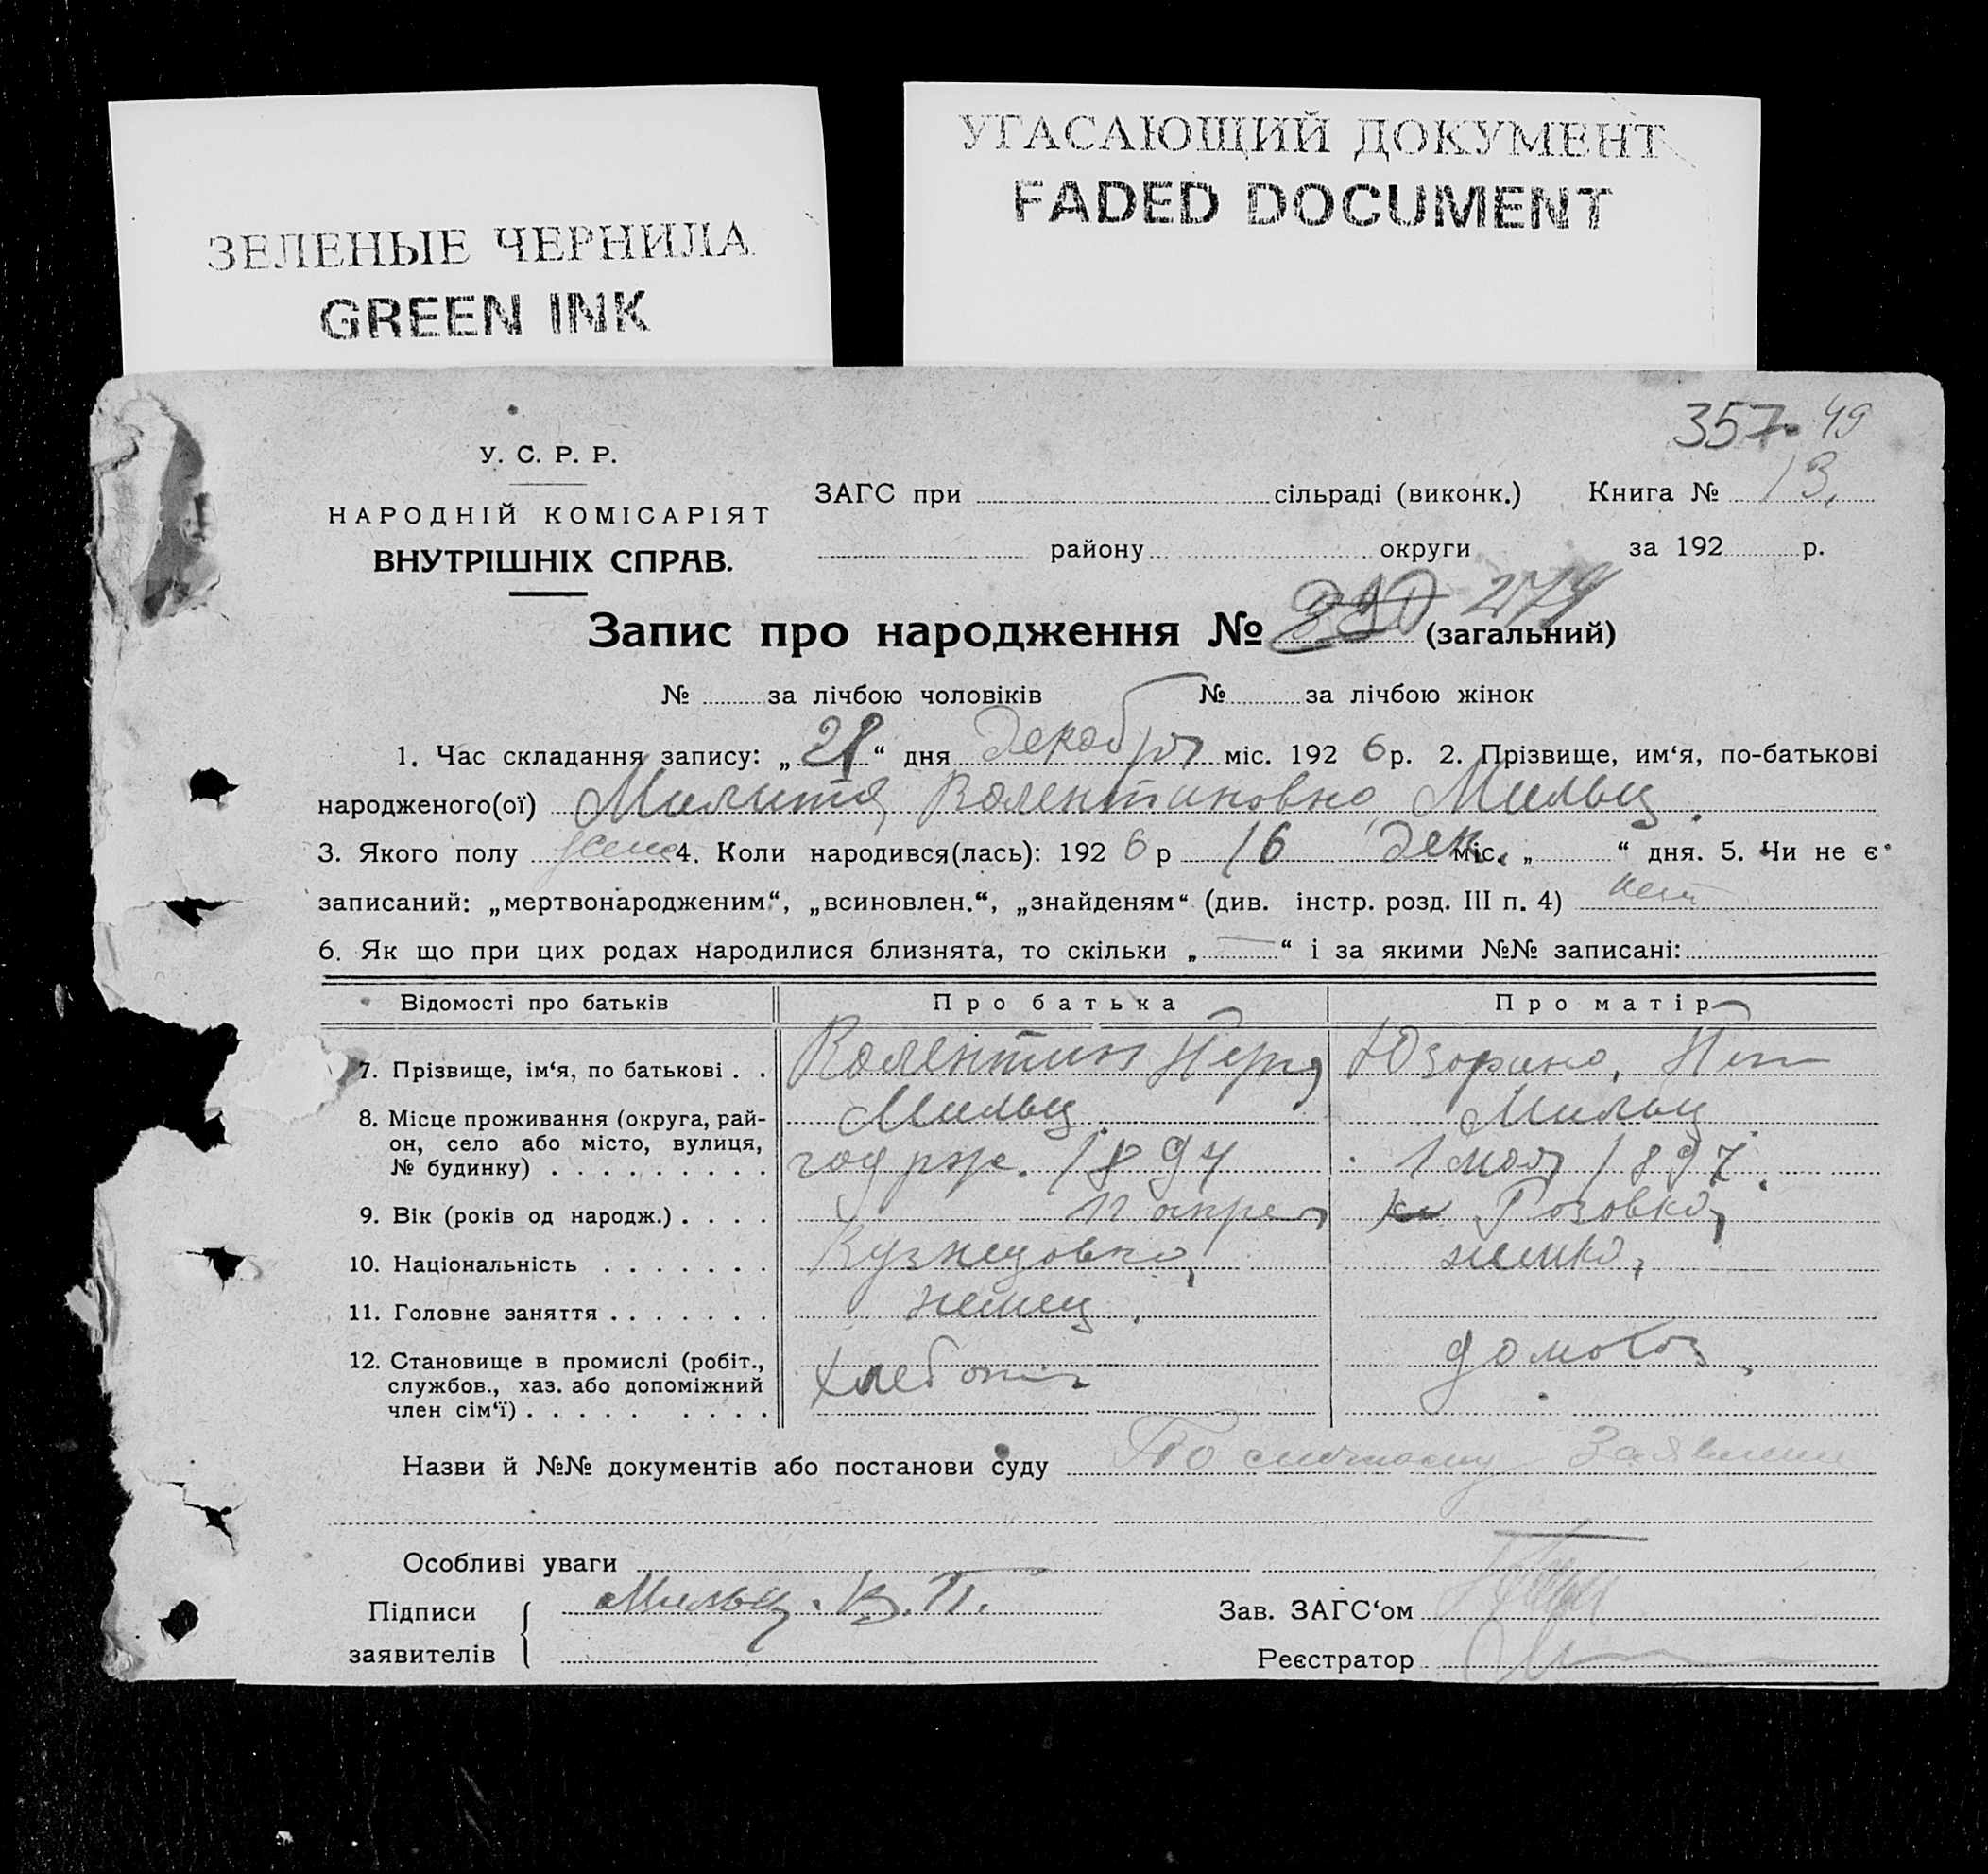 УГАСАЮЩИЙ ДОКУМЕНТ
FADED DOCUMENT
ЗЕЛЕНЫЕ ЧЕРНИЛА
GREEN INK
357 49
У. С. Р. Р.
НАРОДНІЙ КОМІСАРІЯТ
ВНУТРІШНІХ СПРАВ.
ЗАГС при сільраді (виконк.) Книга № 13.
району округи за 192 р.
Запис про народження № 279 (загальний)
№ за лічбою чоловіків № за лічбою жінок
1. Час складання запису: „ “ дня декабря міс. 192 6 р. 2. Прізвище, им‘я, по-батькові
народженого(ої) Милита Валентиновна Мильц
3. Якого полу жен 4. Коли народився(лась): 192 6 р 16 дек. міс. „ “ дня. 5. Чи не є
записаний: „мертвонародженим“, „всиновлен.“, „знайденям“ (див. інстр. розд. III п. 4) нет
6. Як що при цих родах народилися близнята, то скільки „ — “ і за якими №№ записані:
Відомості про батьків Про батька Про матір
7. Прізвище, ім‘я, по батькові . . Валентин
Мильц Мильц
8. Місце проживання (округа, рай-
он, село або місто, вулиця,
№ будинку) . . . . . . . . . год рж. 1894 1 мая 1897.
9. Вік (років од народж.) . . . . 12 апрел Розовка,
10. Національність . . . . . . . Кузнецовка, немка,
11. Головне заняття . . . . . . . немец.
12. Становище в промислі (робіт.,
службов., хаз. або допоміжний
член сім‘ї) . . . . . . . . . хлебопаш домохоз.
Назви й №№ документів або постанови суду По личному Заявлению
Особливі уваги
Підписи Мильц. В. П.
заявителів
Зав. ЗАГС‘ом
Реєстратор